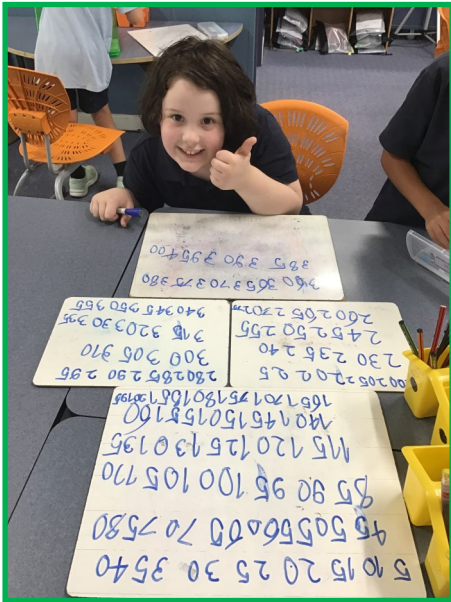 5 10 15 20 25 30 35 40
45 50 55 60 65 70 75 80
85 90 95 100 105 110
115 120 125 130 135
140 145 150 155 160
165 170 175 180 185
200 205 220 225
230 235 240
245 250 255
260 265 270
280 285 290 295
300 305 310
315 320 330 335
340 345 350 355
360 365 370 375 380
385 390 395 400